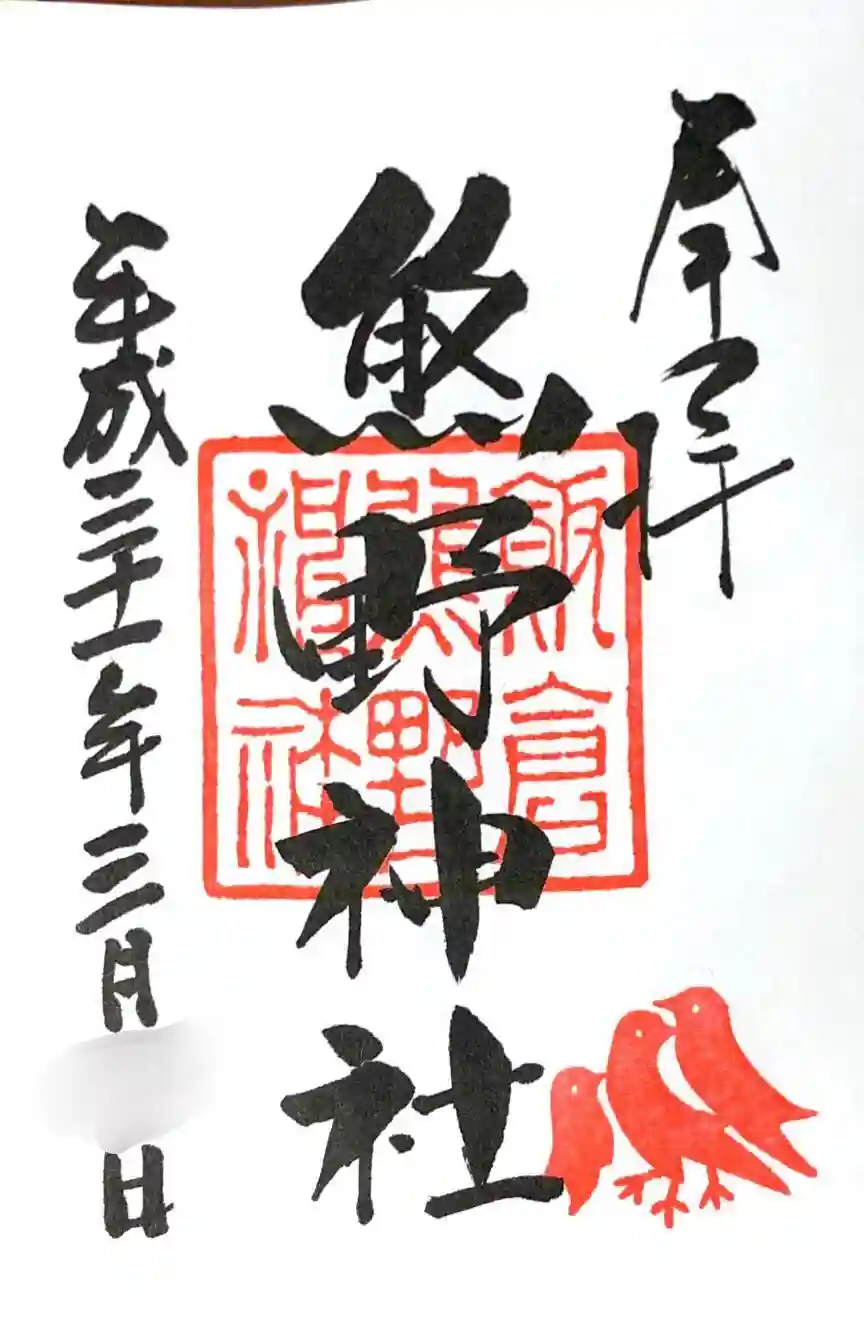 奉拝
熊野神社
飯倉
熊野
神社
平成三十一年三月
日